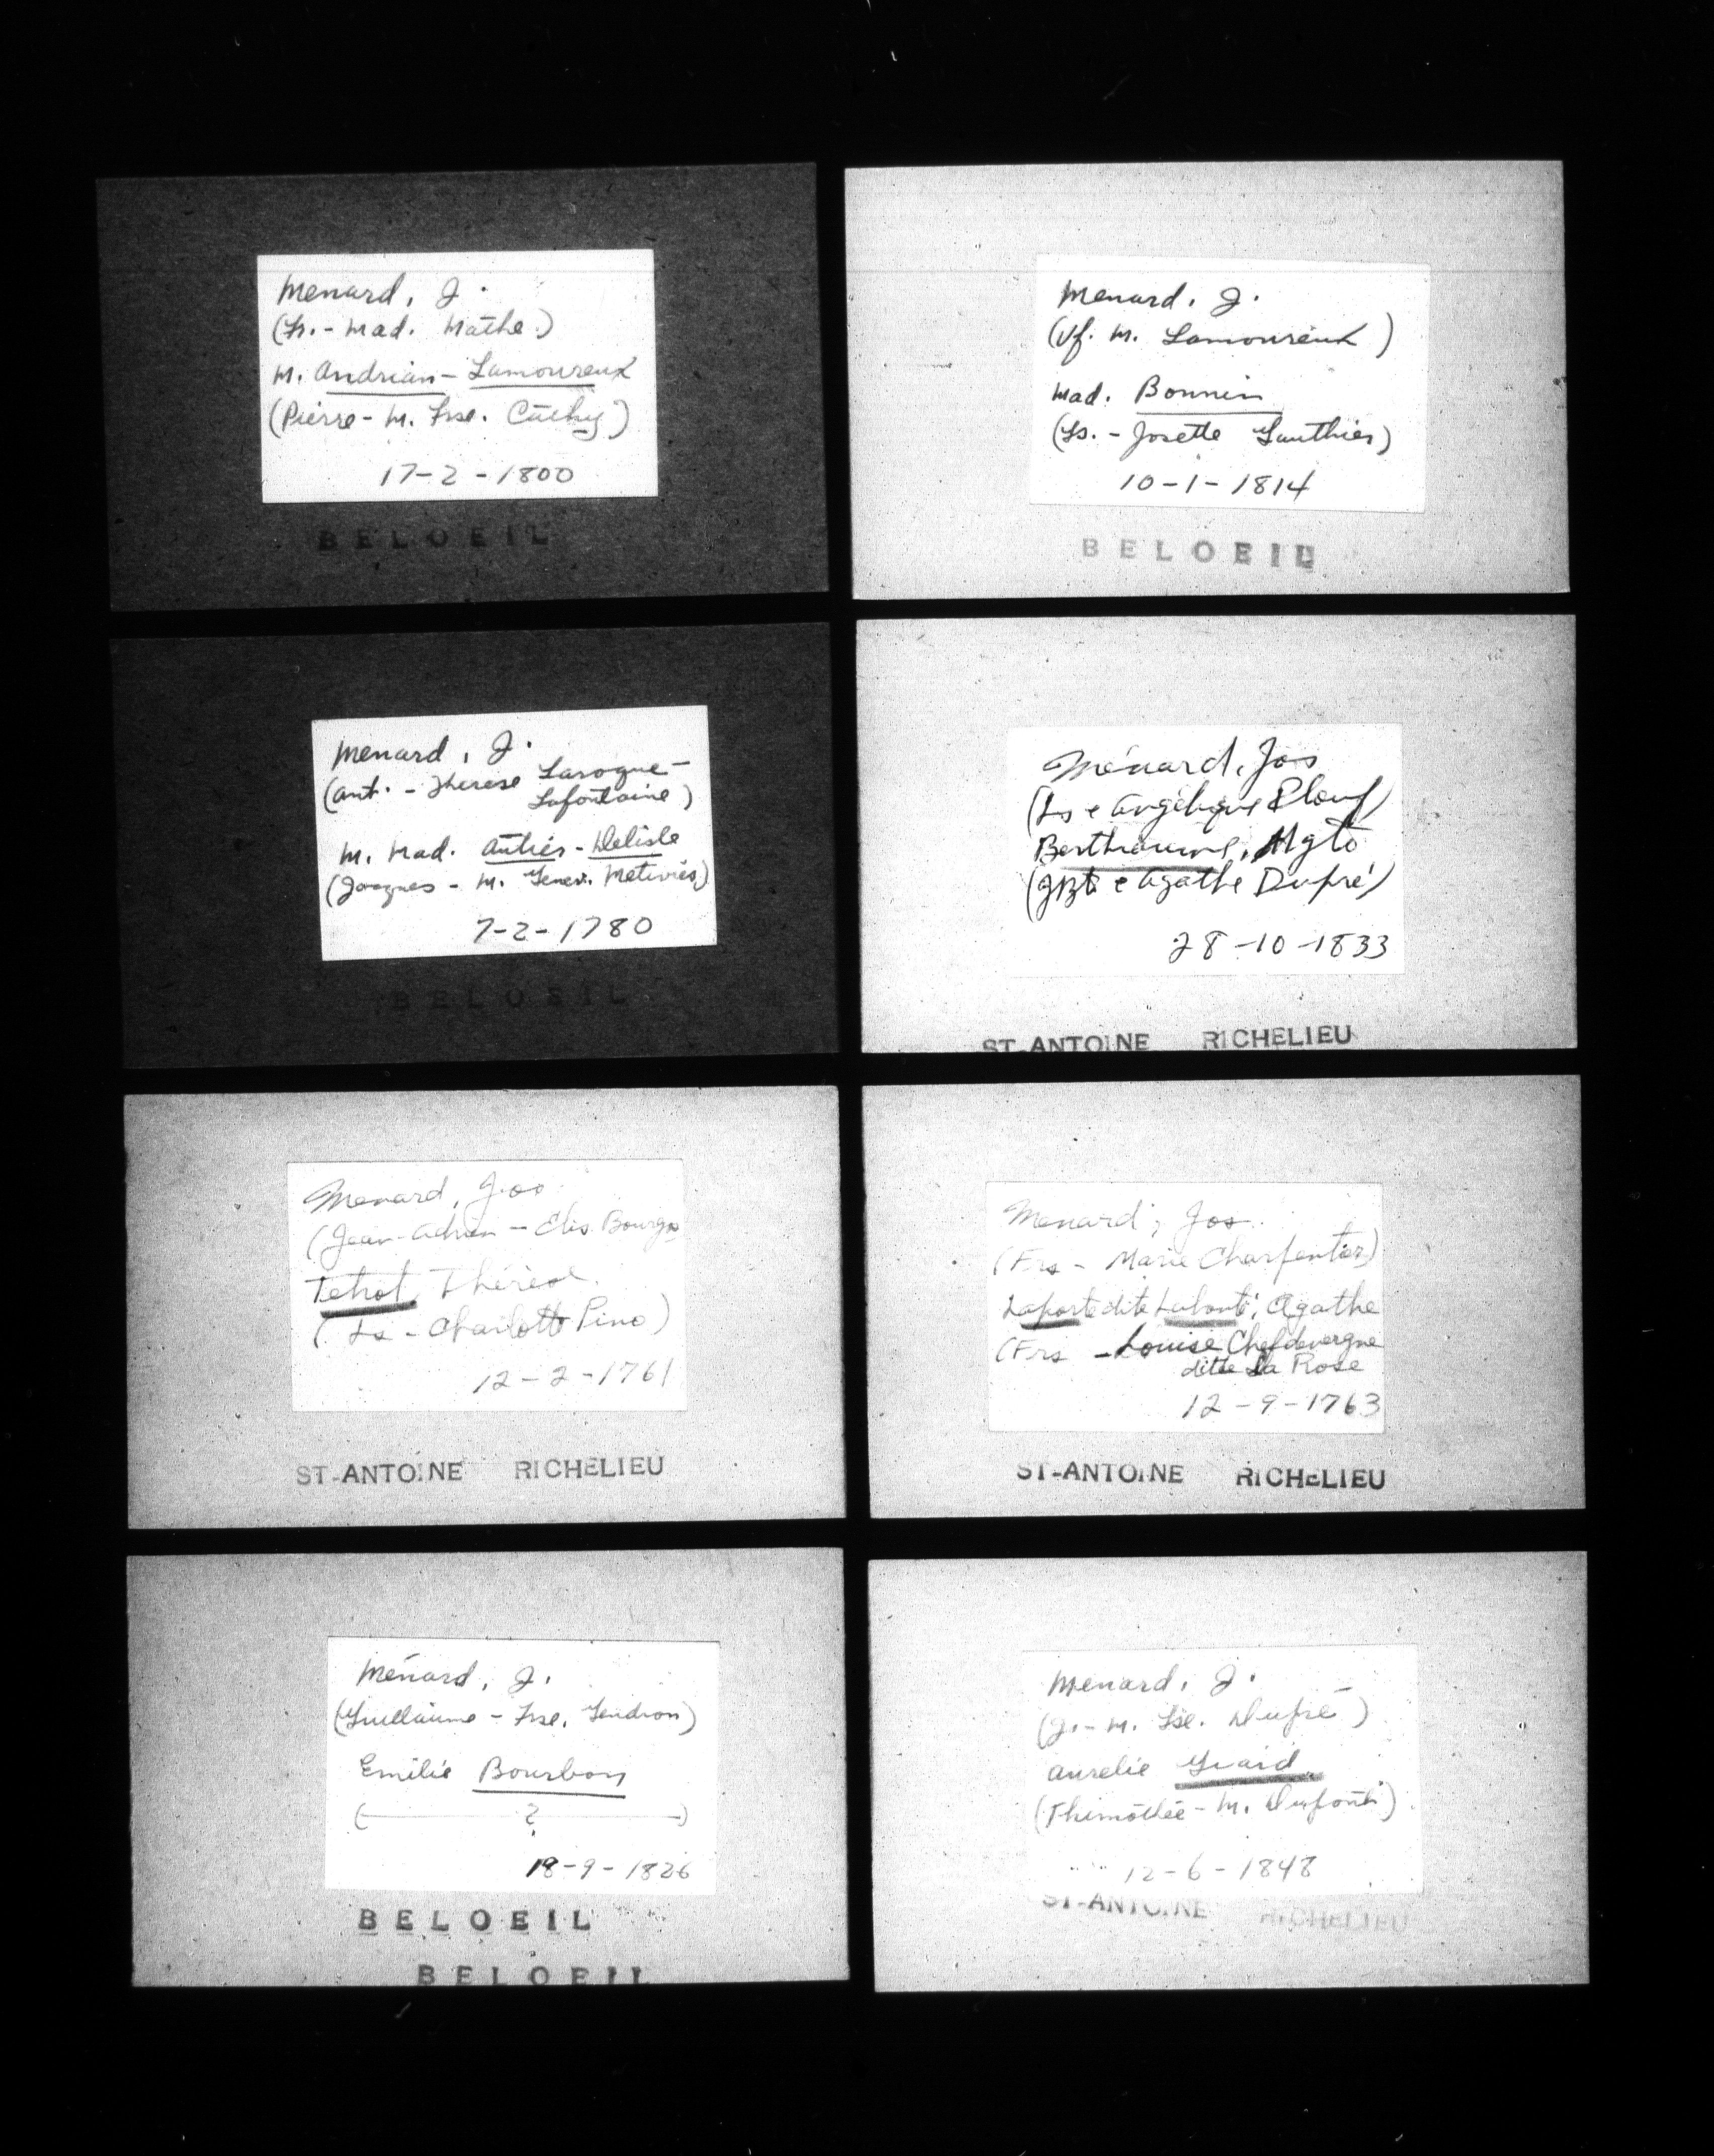 Menard, J.
(Ls. - Mad. Mathe.)
M. Andrian - Lamoureux
(Pierre - M. Frse. Cathy)
17-2-1800
BELOEIL
Menard, J.
(Vf. M. Lamoureux)
Mad. Bonnin
(Ls. - Josette Gauthier)
10-1-1814
BELOEIL
Menard, J.
(Ant. - Therese Laroque-
Lafontaine)
M. Mad. Autier - Delisle
(Jacques - M. Genev. Metivier)
7-2-1780
BELOEIL
Ménard, Jos
(Ls e Angélique Plouf)
Berthiaume, Mgte
(JBte e Agathe Dupré)
28-10-1833
ST-ANTOINE RICHELIEU
Menard, Jos.
(Jean-Adrien - Elis. Bourgs
Tetrot, Thérèse.
(Ls - Charlotte Pino)
12-2-1761
ST-ANTOINE RICHELIEU
Menard, Jos.
(Frs - Marie Charpentier)
Laporte dite Labonté, Agathe
(Frs - Louise Chefdevergne
ditte La Rose
12-9-1763
ST-ANTOINE RICHELIEU
Ménard, J.
(Guillaume - Frse. Gendron)
Emilie Bourbon
( ? )
18-9-1826
BELOEIL
BELOEIL
Menard, J.
(J. - M. Lse. Dupré)
Aurelie
(Thimothée - M. Dupont)
12-6-1848
ST-ANTOINE RICHELIEU